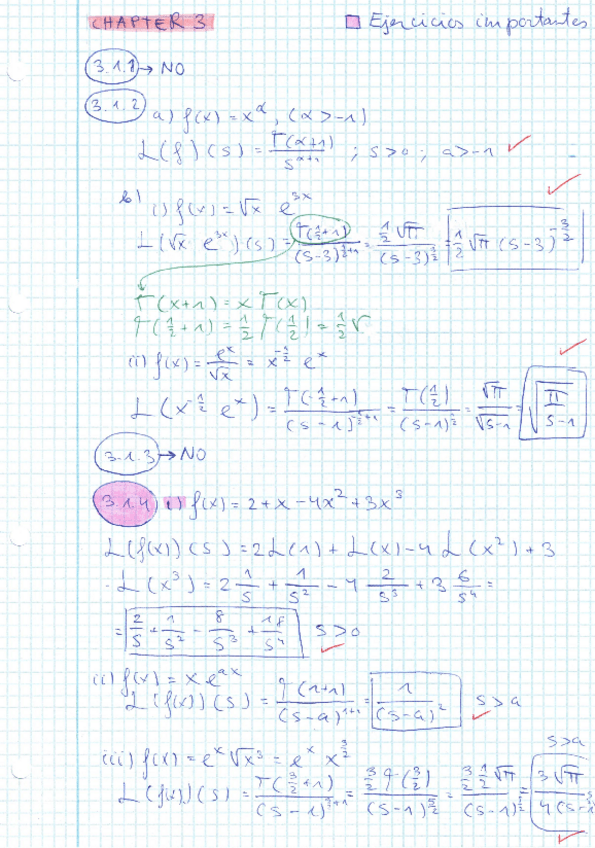 CHAPTER 3
Ejercicios importantes
3.1.1 → NO
3.1.2 a) f(x) = x^α, (α > -1)
L(f)(s) = Γ(α+1)/s^(α+1) ; s>0 ; a>-1
b) i) f(x) = √x e^(3x)
L(√x · e^(3x))(s) = Γ(1/2+1)/(s-3)^(1/2+1) = (1/2 √π)/(s-3)^(3/2) = 1/2 √π (s-3)^(-3/2)
Γ(x+1) = x Γ(x)
Γ(1/2+1) = 1/2 Γ(1/2) = 1/2 √
ii) f(x) = e^x/√x = x^(-1/2) e^x
L(x^(-1/2) e^x) = Γ(-1/2+1)/(s-1)^(-1/2+1) = Γ(1/2)/(s-1)^(1/2) = √π/√(s-1) = √(π/(s-1))
3.1.3 → NO
3.1.4 i) f(x) = 2+x-4x²+3x³
L(f(x))(s) = 2L(1) + L(x) - 4 L(x²) + 3
· L(x³) = 2 1/s + 1/s² - 4 2/s³ + 3 6/s⁴ =
= 2/s + 1/s² - 8/s³ + 18/s⁴ s>0
ii) f(x) = x e^(ax)
L(f(x))(s) = Γ(1+1)/(s-a)^(1+1) = 1/(s-a)² s>a
s>a
iii) f(x) = e^x √x³ = e^x x^(3/2)
L(f(x))(s) = Γ(3/2+1)/(s-1)^(3/2+1) = (3/2 Γ(3/2))/(s-1)^(5/2) = (3/2 1/2 √π)/(s-1)^(5/2) = 3√π/4(s-1)